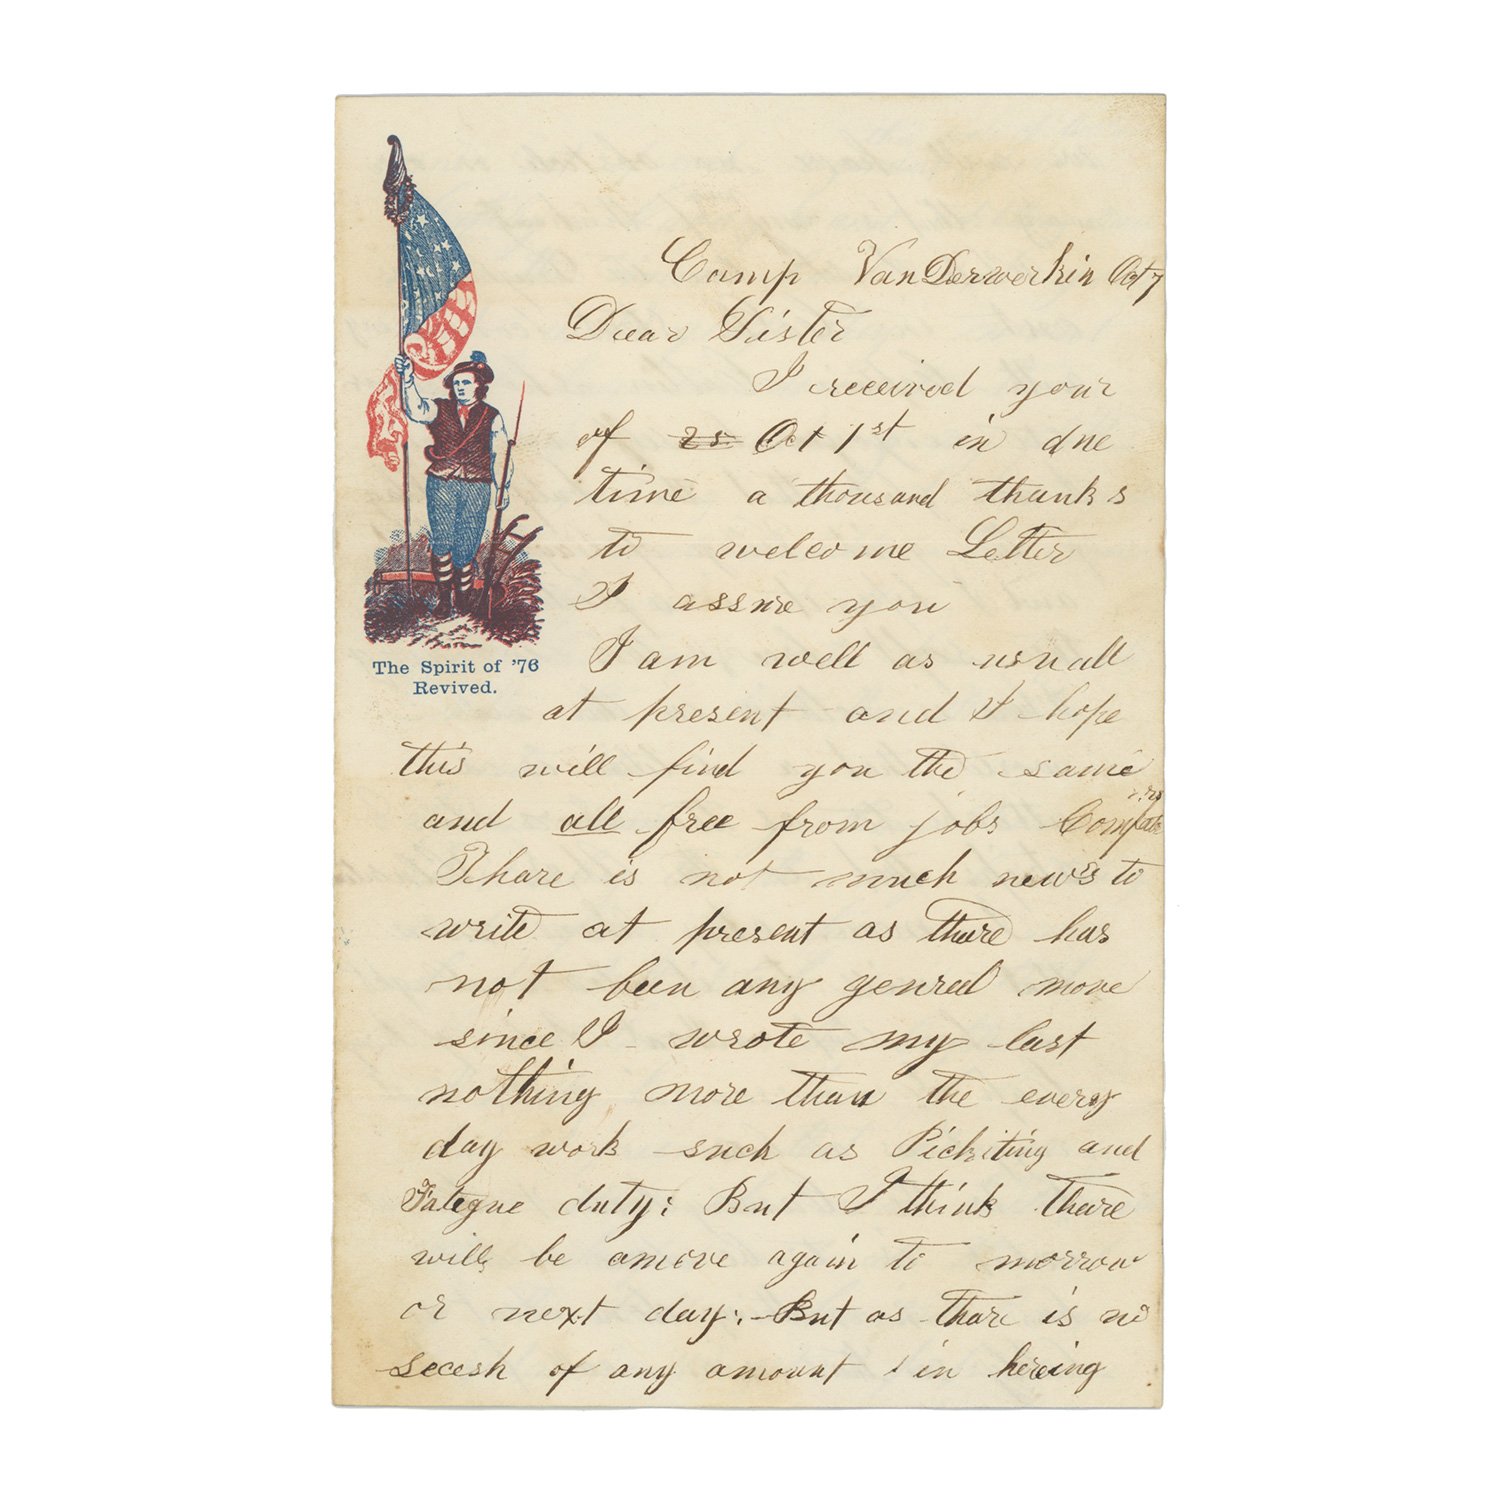 Camp VanDerwerkin Oct 7
Dear Sister
I received your
of 25 Oct 1st in due
time a thousand thanks
to welcome Letter
I assure you
I am well as usuall
at present and I hope
this will find you the same
and all free from jobs Comforters
Thare is not much news to
write at present as thare has
not been any genrel move
since I wrote my last
nothing more than the every
day work such as Pickiting and
Fategue duty; But I think thare
will be amove again to morrow
or next day; But as thare is no
secesh of any amount in hereing
The Spirit of '76
Revived.